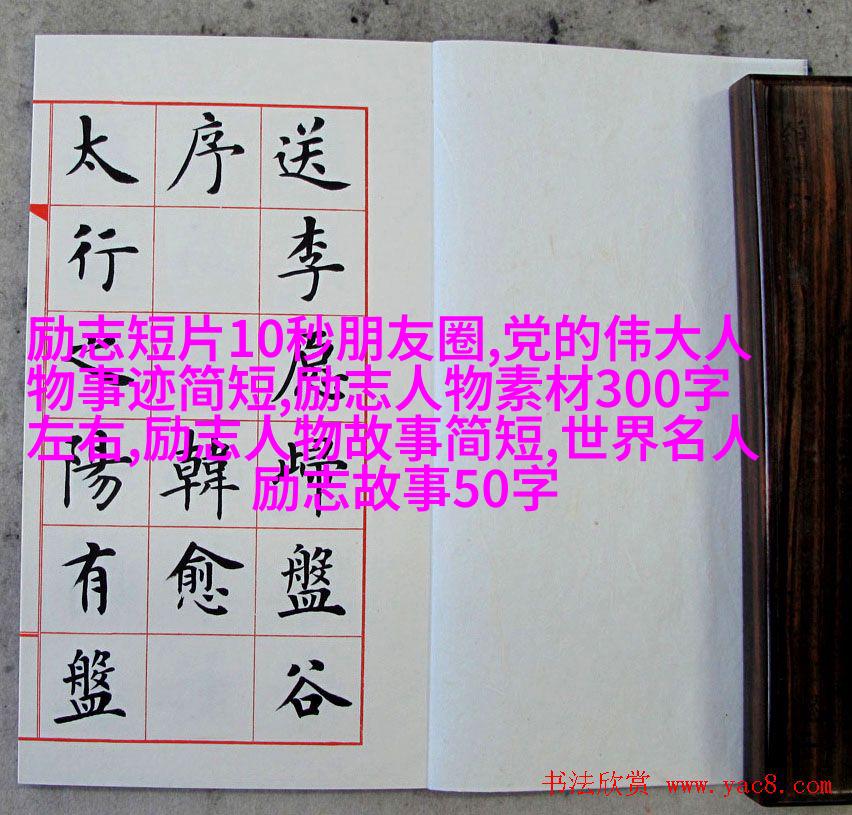 送李愿歸盤谷
序 韓愈
太行之陽有盤
励志短片10秒朋友圈,党的伟大人
物事迹简短,励志人物素材300字
左右,励志人物故事简短,世界名人
励志故事50字
书法欣赏 www.yac8.com